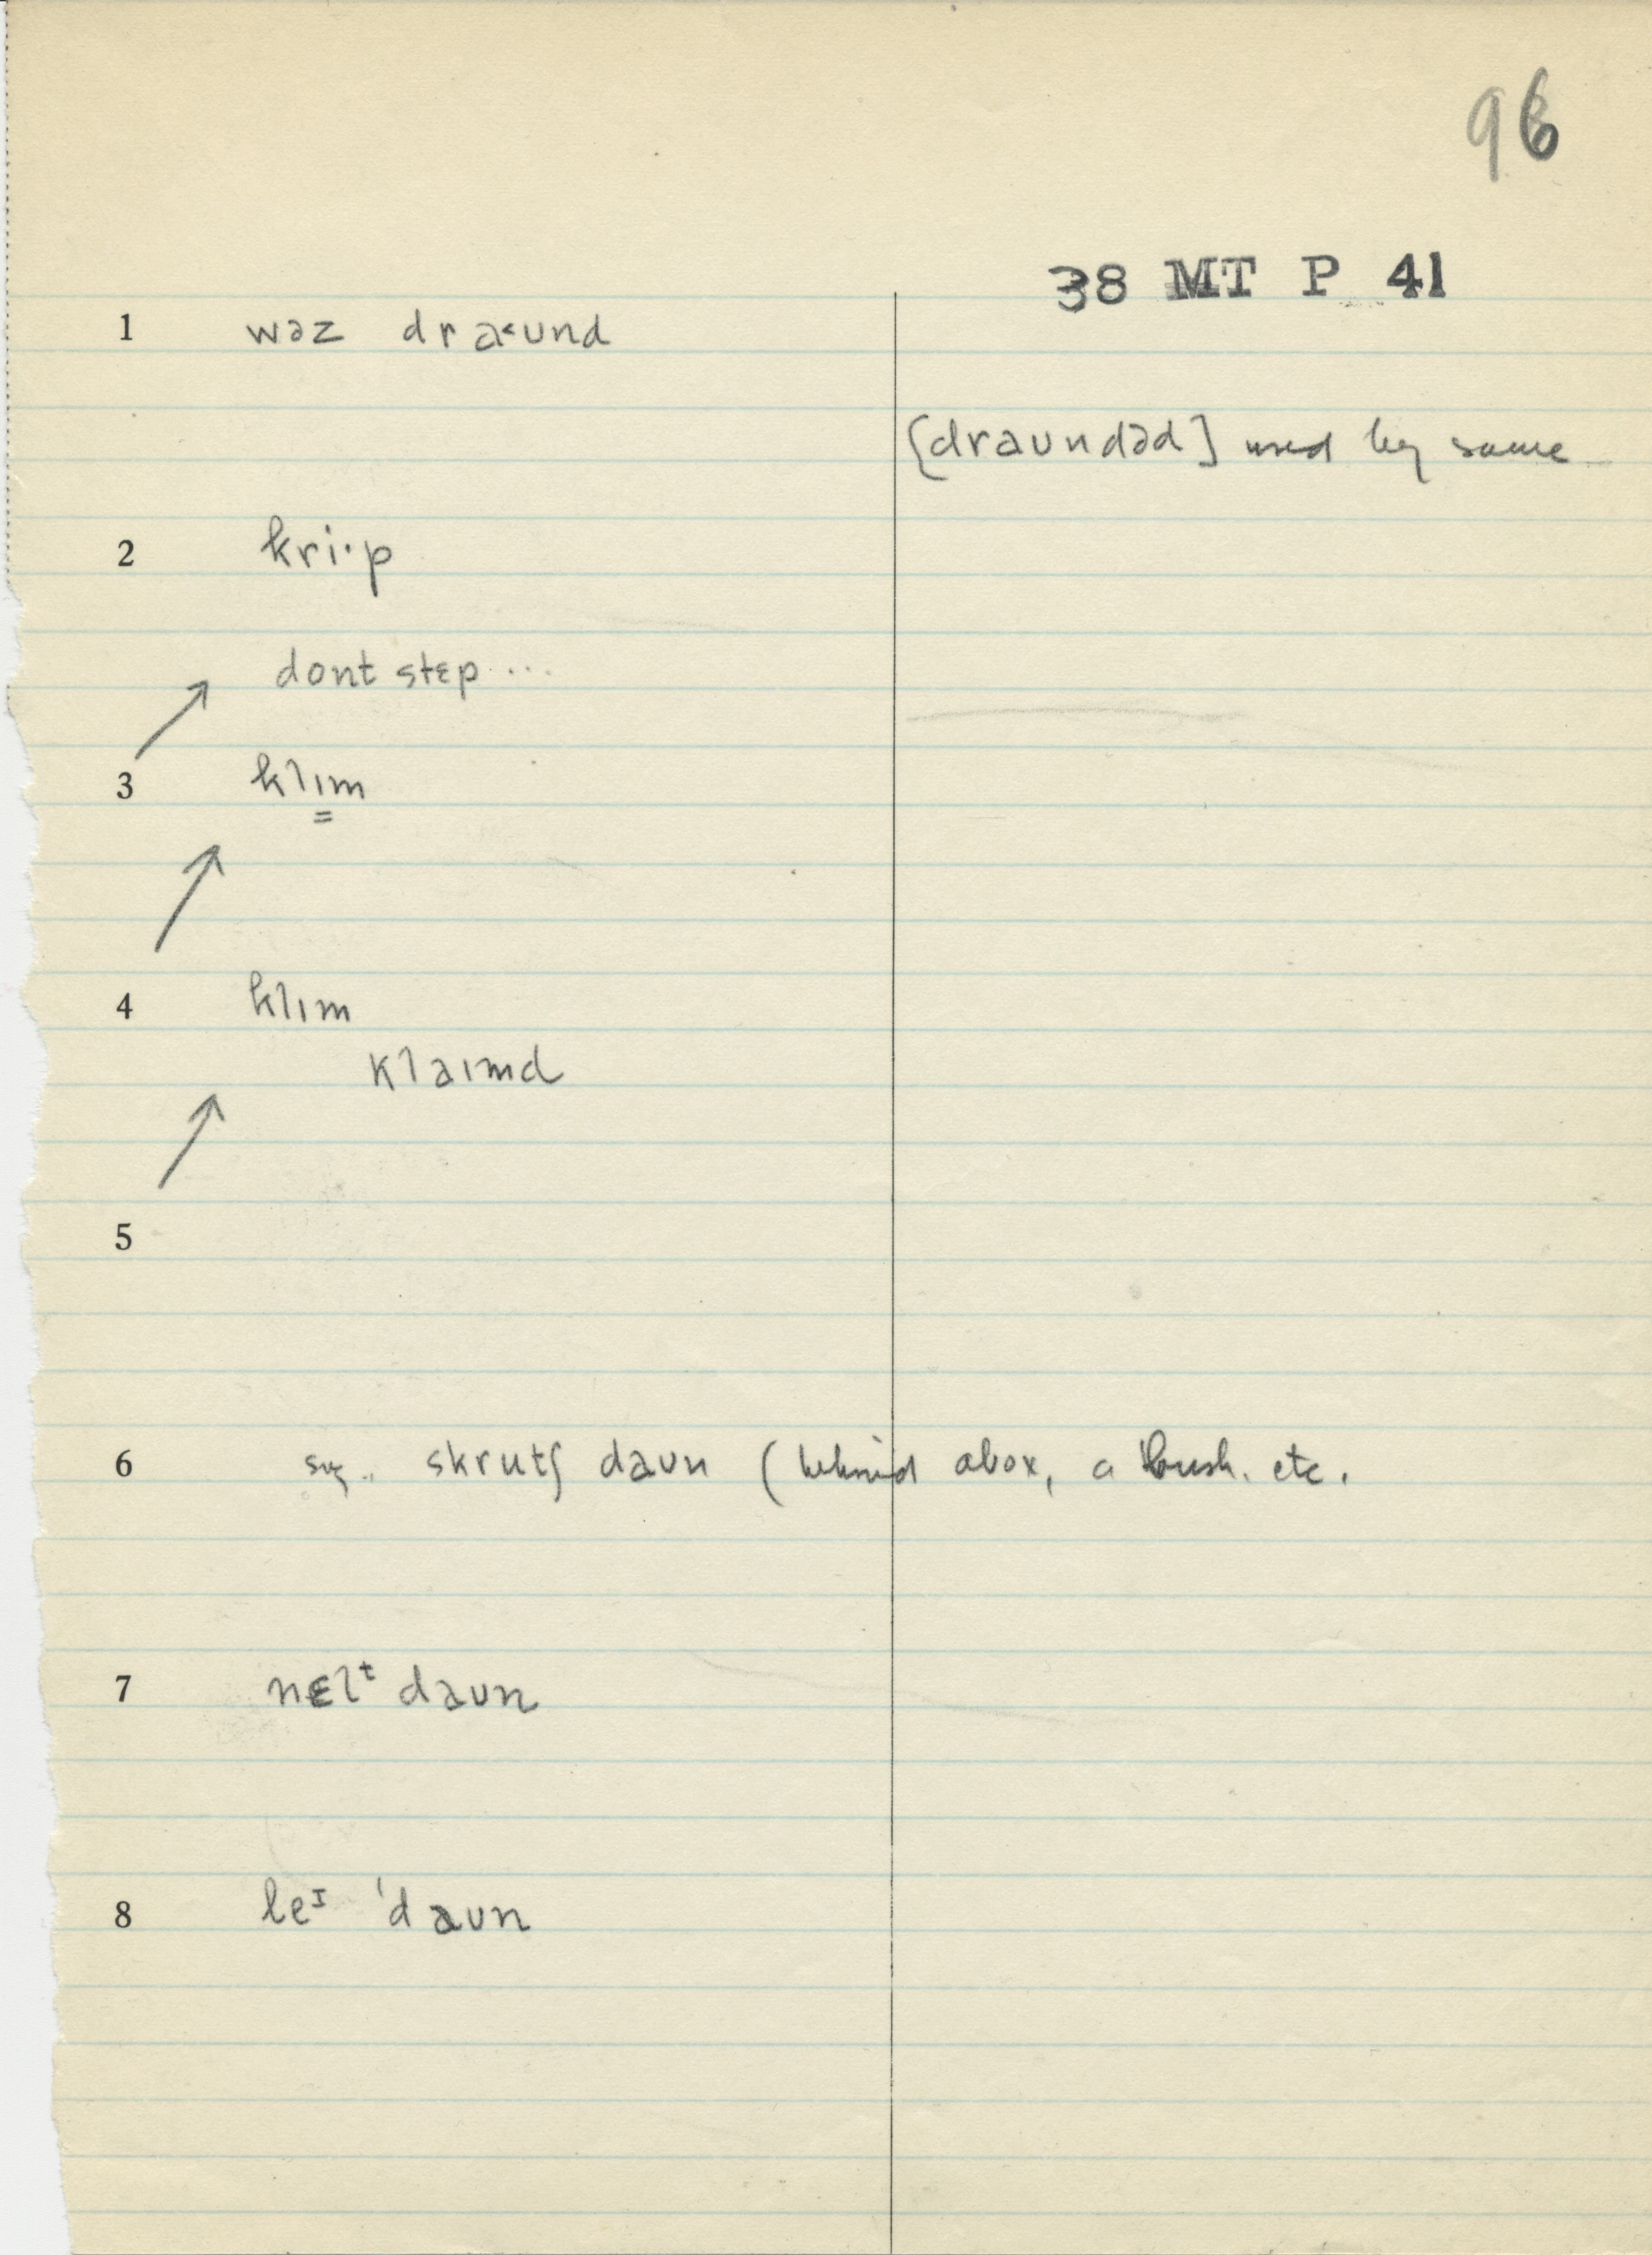 96
38 MT P 41
1 wəz dra˂ʊnd
[draʊndəd] used by some
2 kri·p
dont stɛp ...
3 klɪm
4 klɪm
klaɪmd
5
6 sug.. skrutʃ daʊn (behind a box, a bush. etc.
7 nɛlᵗ daʊn
8 leᶦ 'daʊn